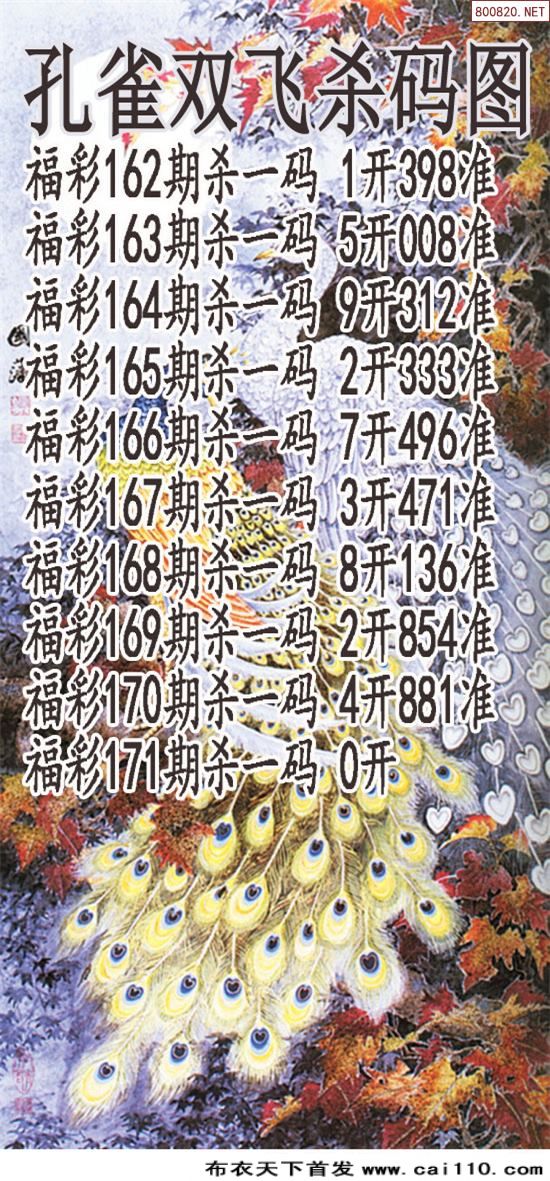 800820.NET
孔雀双飞杀码图
福彩162期杀一码 1开398准
福彩163期杀一码 5开008准
福彩164期杀一码 9开312准
福彩165期杀一码 2开333准
福彩166期杀一码 7开496准
福彩167期杀一码 3开471准
福彩168期杀一码 8开136准
福彩169期杀一码 2开854准
福彩170期杀一码 4开881准
福彩171期杀一码 0开
布衣天下首发 www.cai110.com